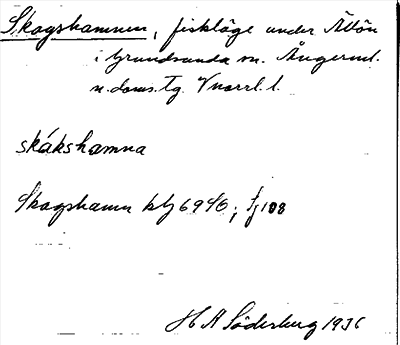 Skagshamnen, fiskläge under Ällön
i Grundsunda sn. Ångerml.
n. doms. tg. Vnorrl. l.
skákshamna
Skagshamn kbg 69 SO; fj 108
H A Söderberg 1936